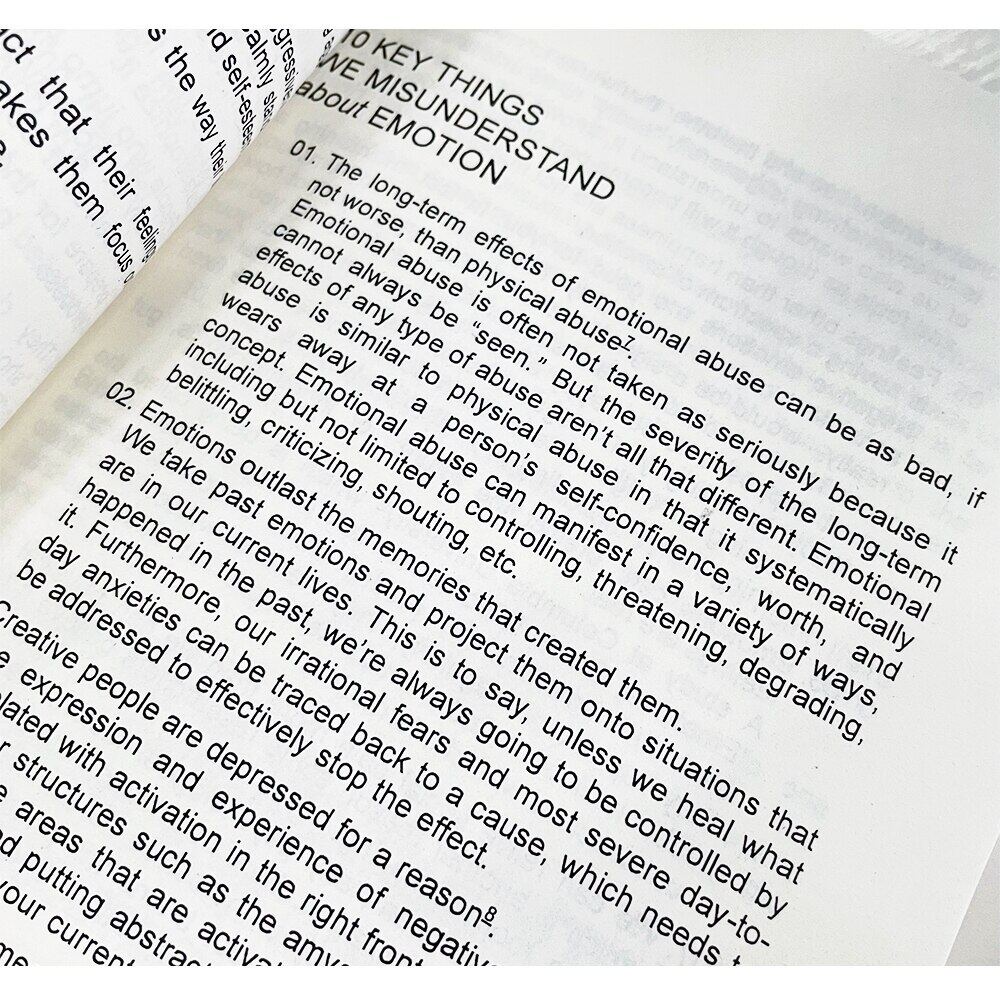 self-estee
the way their
that their feeling
them focus
10 KEY THINGS
WE MISUNDERSTAND
about EMOTION
01. The long-term effects of emotional abuse can be as bad, if
not worse, than physical abuse7.
Emotional abuse is often not taken as seriously because it
cannot always be “seen.” But the severity of the long-term
effects of any type of abuse aren’t all that different. Emotional
abuse is similar to physical abuse in that it systematically
wears away at a person’s self-confidence, worth, and
concept. Emotional abuse can manifest in a variety of ways,
including but not limited to controlling, threatening, degrading,
belittling, criticizing, shouting, etc.
02. Emotions outlast the memories that created them.
We take past emotions and project them onto situations that
are in our current lives. This is to say, unless we heal what
happened in the past, we’re always going to be controlled by
it. Furthermore, our irrational fears and most severe day-to-
day anxieties can be traced back to a cause, which needs
be addressed to effectively stop the effect.
Creative people are depressed for a reason8.
expression and experience of negativ
lated with activation in the right front
structures such as the amy
areas that are activat
putting abstrac
your current